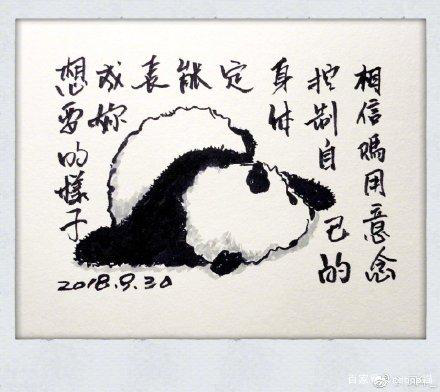 相信嗎用意念
控制自己的
身体
定
能
成妳
想要的樣子
2018.9.30